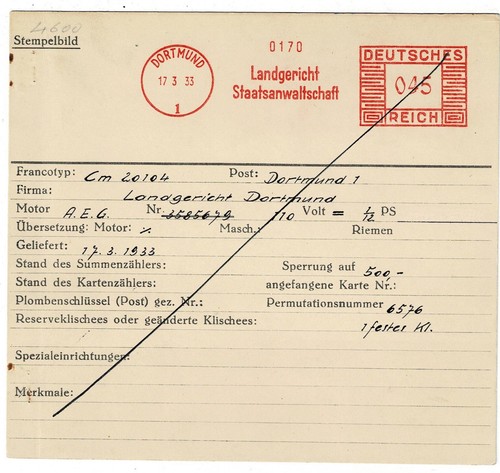 4600
Stempelbild
DORTMUND
17 3 33
1
0170
Landgericht
Staatsanwaltschaft
DEUTSCHES
045
REICH
Francotyp: Cm 20104 Post: Dortmund 1
Firma: Landgericht Dortmund
Motor A.E.G. Nr. 3585679 110 Volt = 1/12 PS
Übersetzung: Motor: ⁒ Masch.: Riemen
Geliefert: 17.3.1933
Stand des Summenzählers: Sperrung auf 500,-
Stand des Kartenzählers: angefangene Karte Nr.:
Plombenschlüssel (Post) gez. Nr.: Permutationsnummer 6576
Reserveklischees oder geänderte Klischees: 1 fester Kl.
Spezialeinrichtungen:
Merkmale: